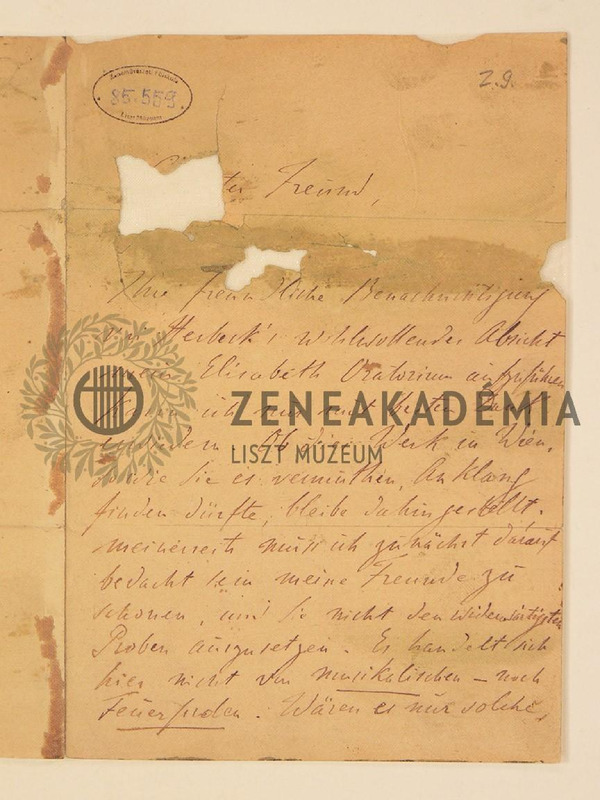 Zeneművészeti Főiskola
85.559
Liszt Múzeum
Z. 9.
ter Freund,
Ihre freundliche Benachrichtigung
von Herbeck's wohlwollender Absicht
mein Elisabeth Oratorium aufzuführen
kann ich nur mit besten Dank
erwidern. Ob dies Werk in Wien,
wie Sie es vermuthen, Anklang
finden dürfte, bleibe dahingestellt.
meinerseits muss ich zunächst darauf
bedacht sein meine Freunde zu
schonen, und sie nicht den widerwärtigsten
Proben auszusetzen. Es handelt sich
hier nicht von musikalischen – noch
Feuerproben. Wären es nur solche,
ZENEAKADÉMIA
LISZT MÚZEUM